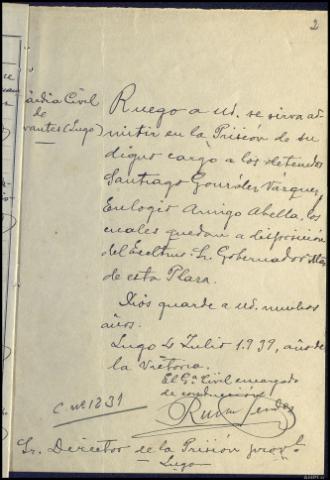 2
ardia Civil
de
vantes (Lugo)
Ruego a Ud. se sirva ad
mitir en la Prisión de su
digno cargo a los detenidos
Santiago González Vázquez
Eulogio Amigo Abella, los
cuales quedan a disposición
del Excmo. Sr. Gobernador
de esta Plaza.
Dios guarde a Ud. muchos
años.
Lugo 4 Julio 1939, año de
la Victoria.
El Gª Civil encargado
de conducciones
C. nº 1231
Sr. Director de la Prisión provl
Lugo